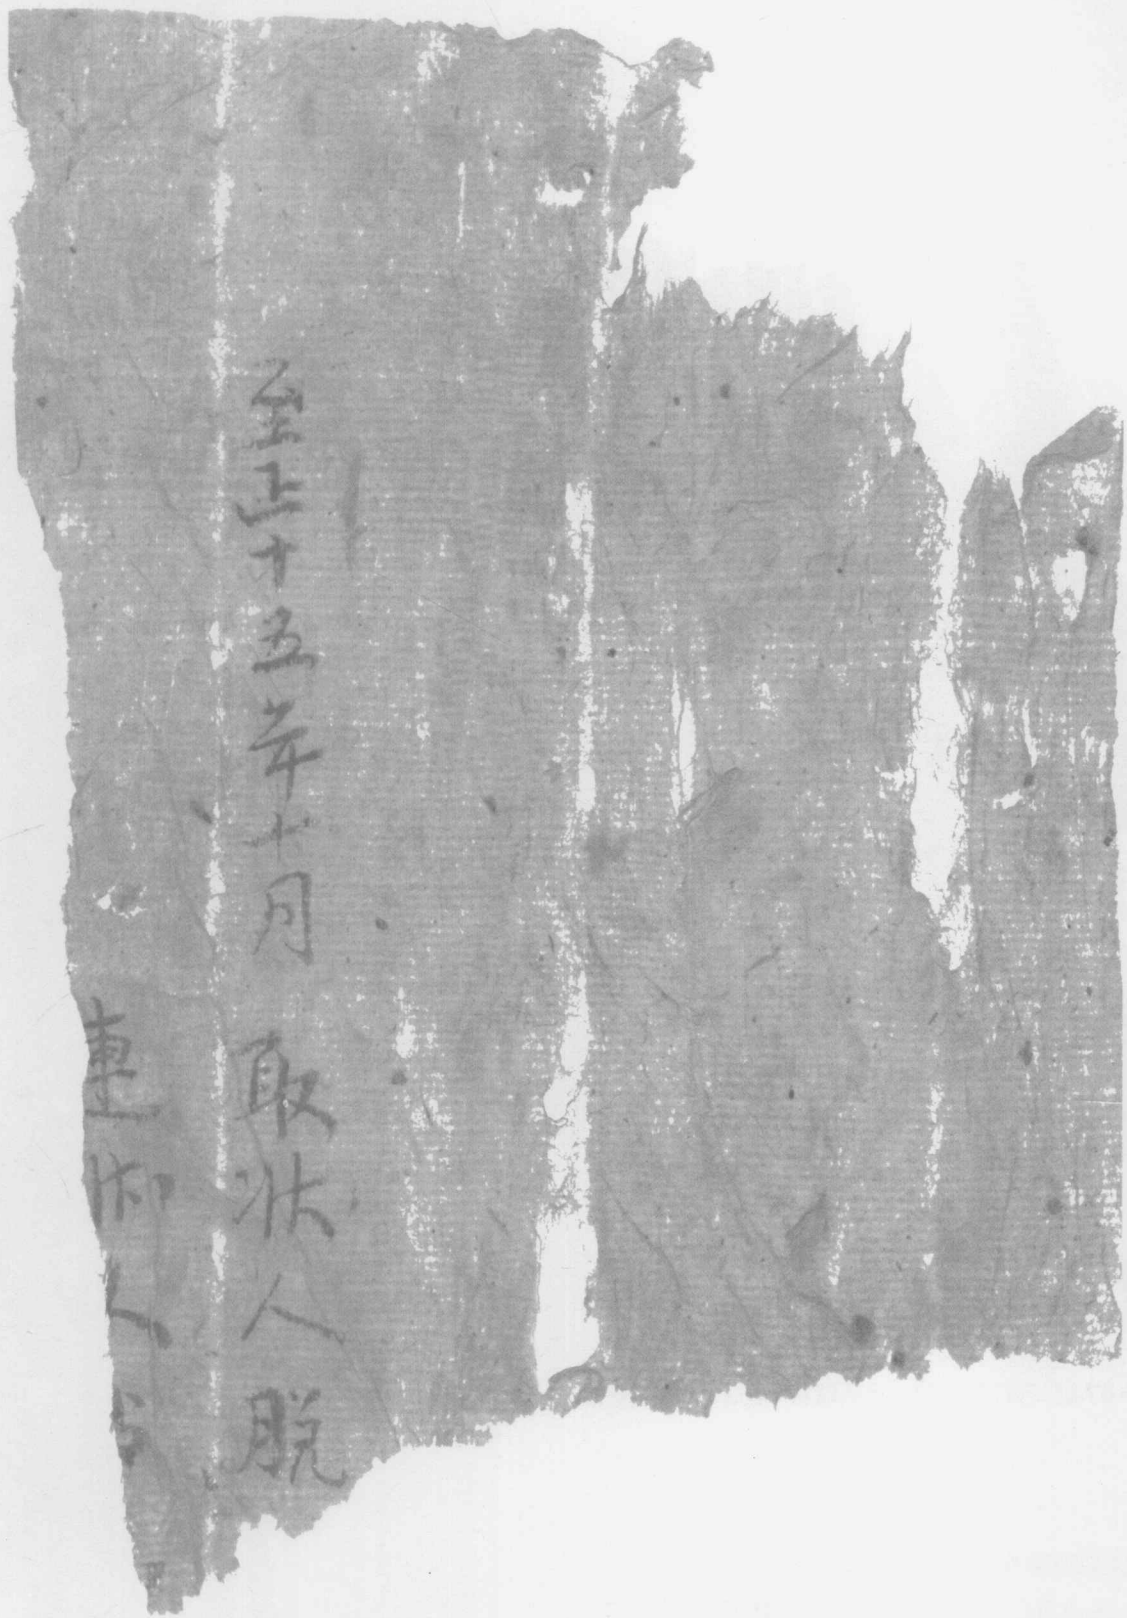 至正十五年十月 取状人 脱
連 人